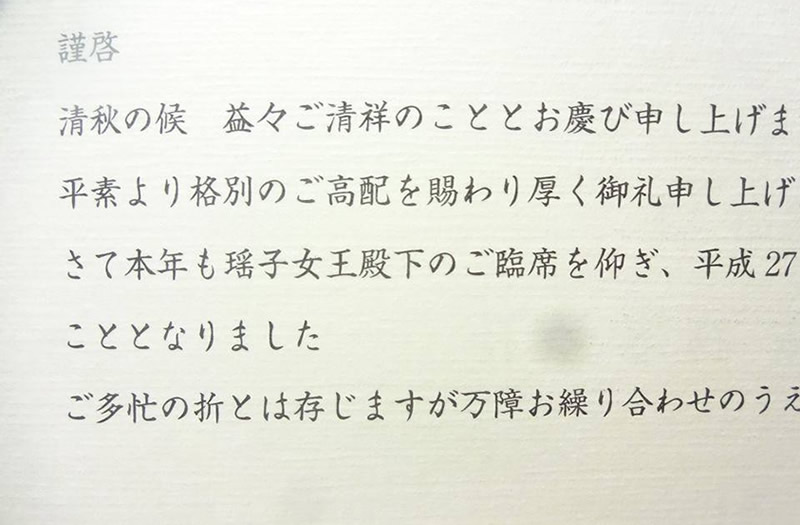 謹啓
清秋の候　益々ご清祥のこととお慶び申し上げま
平素より格別のご高配を賜わり厚く御礼申し上げ
さて本年も瑶子女王殿下のご臨席を仰ぎ、平成27
こととなりました
ご多忙の折とは存じますが万障お繰り合わせのうえ